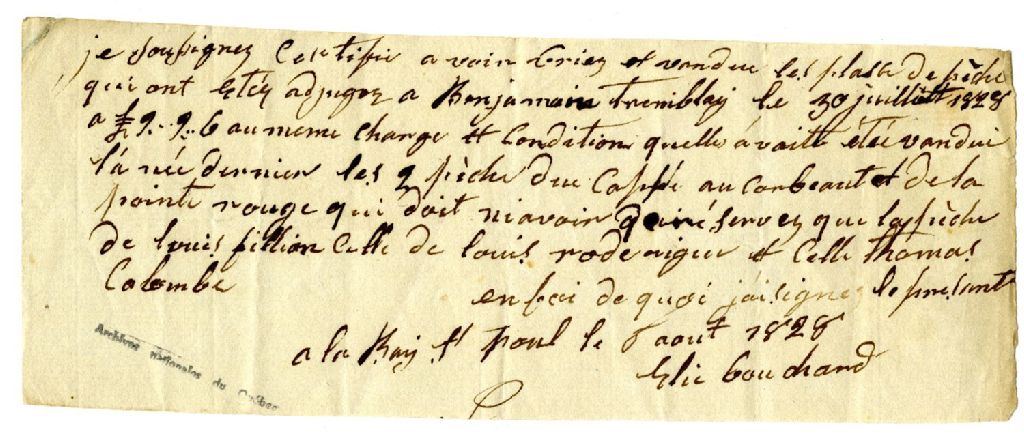 je Sousignez Certifie avoir Criez et vandue les plasse de pèche
qui ont Etéz adjugez a Benjamain Tremblay le 30 juillitt 1828
a £9..9..6 au meme change et Condition quelle avaitt étéé vandue
lá née dernier les 2 pèche du Cappé au Corbeaut et de la
pointe rouge qui doit niavoir de réservez que la pèche
de louis fillion Celle de louis roderigue et Celle thomas
Colombe
en foi de quoi jai signez le presant
a la Bay St Poul le 6 aout 1828
Elie bouchard
Archives nationales du Québec